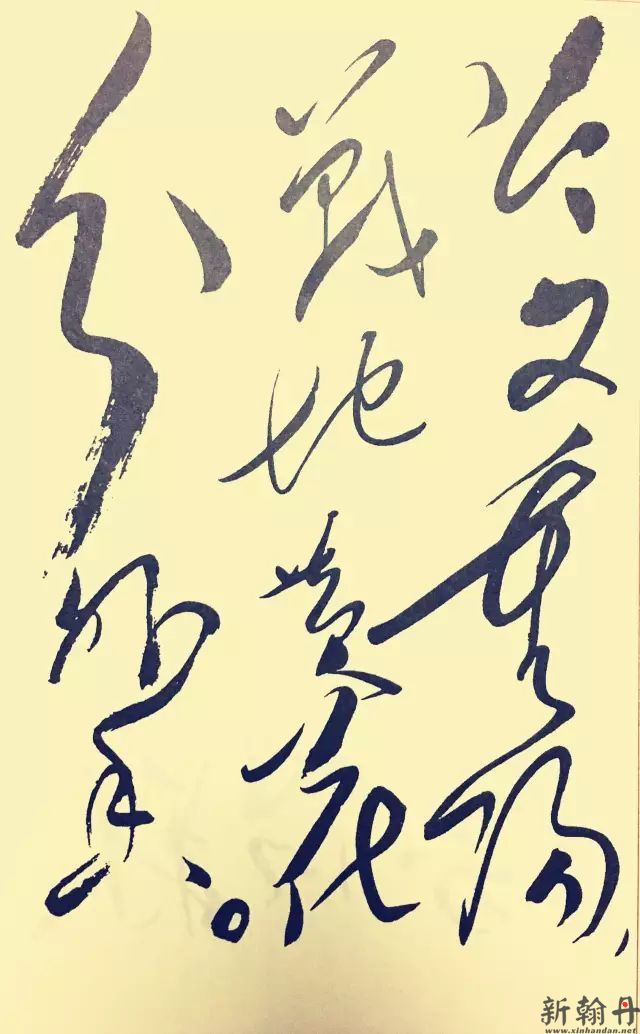 今又重阳，
战地黄花
分外香。
新翰丹
www.xinhandan.net